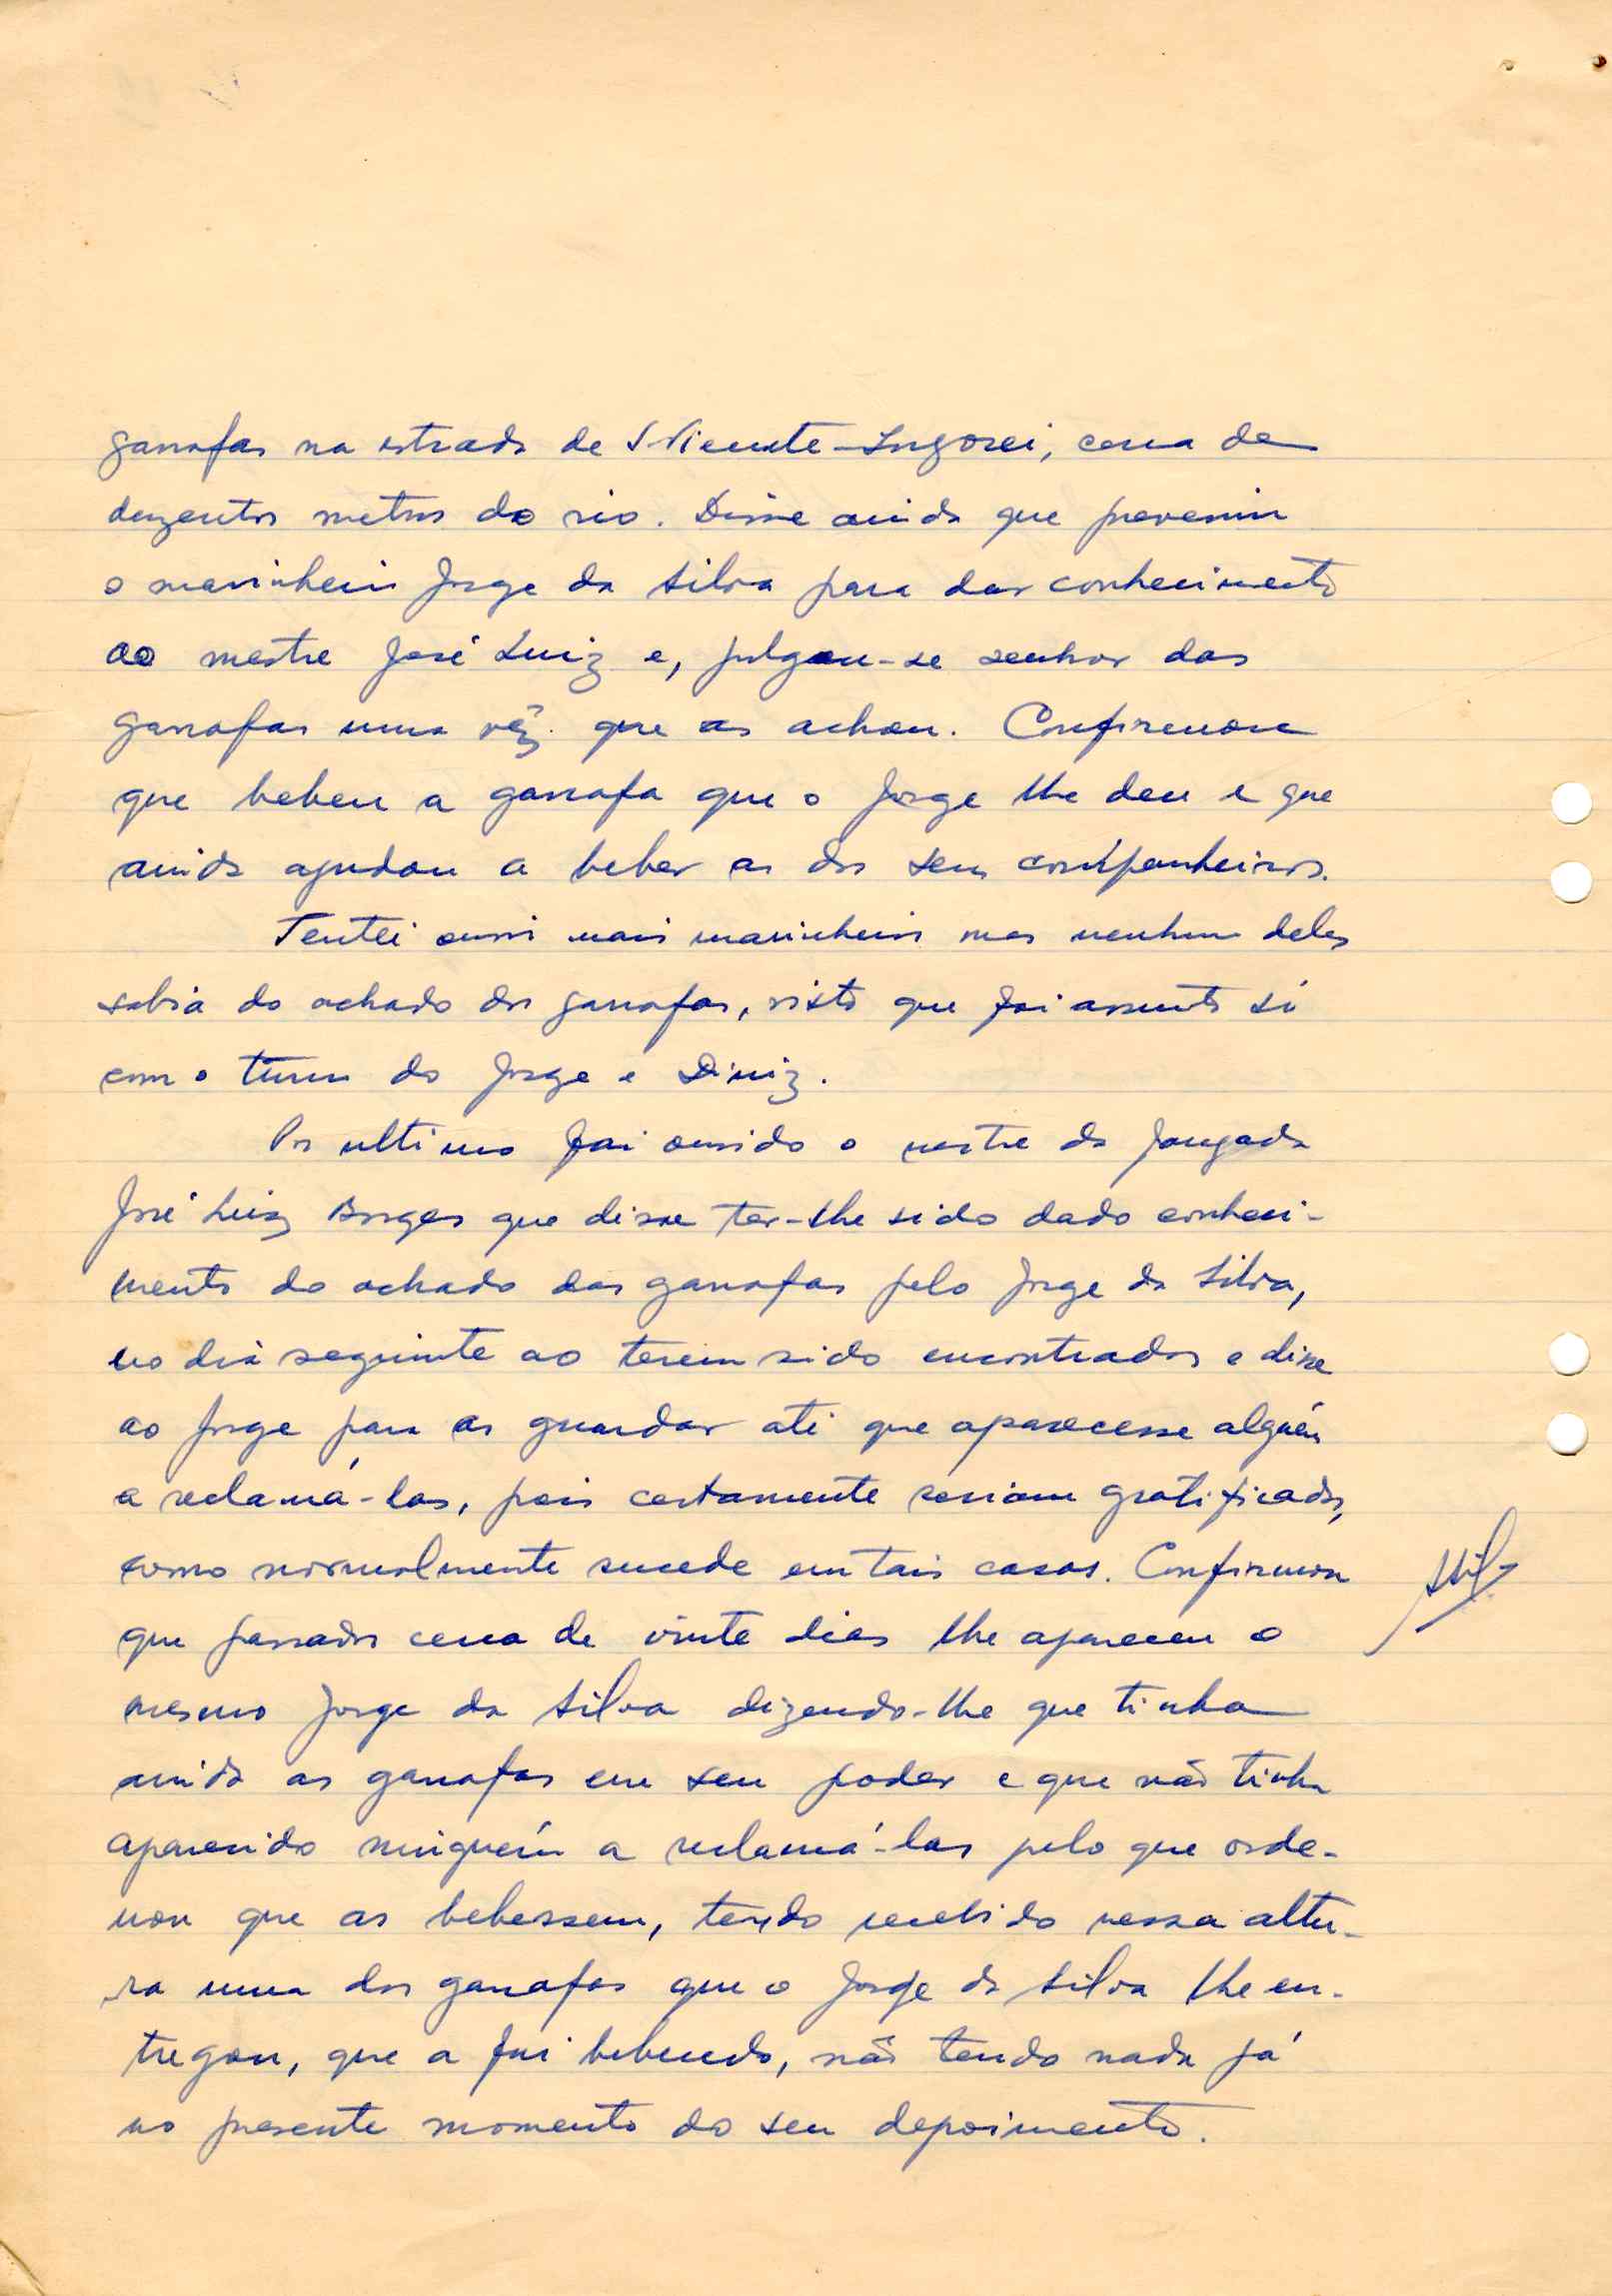 garrafas na estrada de S. Vicente-Ingorei, cerca de
duzentos metros do rio. Disse ainda que preveniu
o marinheiro Jorge da Silva para dar conhecimento
ao mestre José Luiz e, julgou-se senhor das
garrafas uma vêz que as achou. Confirmou
que bebeu a garrafa que o Jorge lhe deu e que
ainda ajudou a beber as dos seus companheiros.
Tentei ouvir mais marinheiros mas nenhum deles
sabia do achado das garrafas, visto que foi assunto só
com o turno do Jorge e Diniz.
Por ultimo foi ouvido o mestre da jangada
José Luiz Borges que disse ter-lhe sido dado conheci-
mento do achado das garrafas pelo Jorge da Silva,
no dia seguinte ao terem sido encontradas e disse
ao Jorge para as guardar até que aparecesse alguém
a reclamá-las, pois certamente seriam gratificados,
como normalmente sucede em tais casos. Confirmou
que passados cerca de vinte dias lhe apareceu o
mesmo Jorge da Silva dizendo-lhe que tinha
ainda as garrafas em seu poder e que não tinha
aparecido ninguém a reclamá-las pelo que orde-
nou que as bebessem, tendo recebido nessa altu-
ra uma das garrafas que o Jorge da Silva lhe en-
tregou, que a foi bebendo, não tendo nada já
no presente momento do seu depoimento.